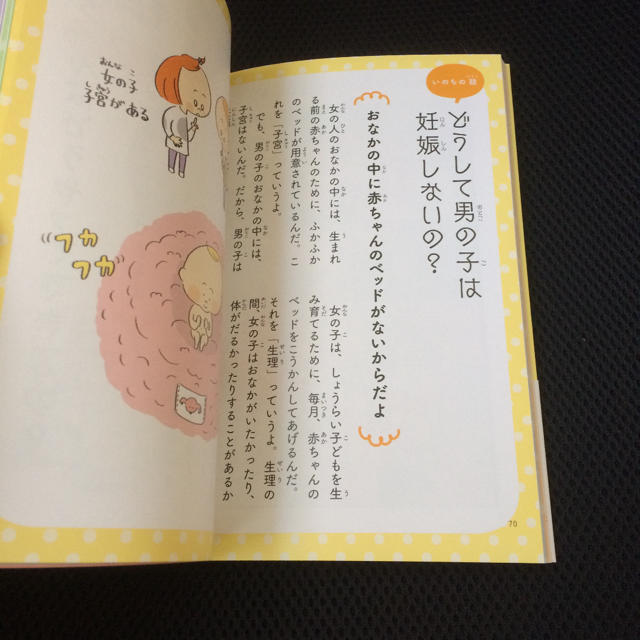 いのちの話
どうして男の子は
妊娠しないの？
おなかの中に赤ちゃんのベッドがないからだよ
女の人のおなかの中には、生まれ
る前の赤ちゃんのために、ふかふか
のベッドが用意されているんだ。こ
れを「子宮」っていうよ。
でも、男の子のおなかの中には、
子宮はないんだ。だから、男の子は
女の子は、しょうらい子どもを生
み育てるために、毎月、赤ちゃんの
ベッドをこうかんしてあげるんだ。
それを「生理」っていうよ。生理の
間、女の子はおなかがいたかったり、
体がだるかったりすることがあるか
70
女の子
子宮がある
フカ
フカ